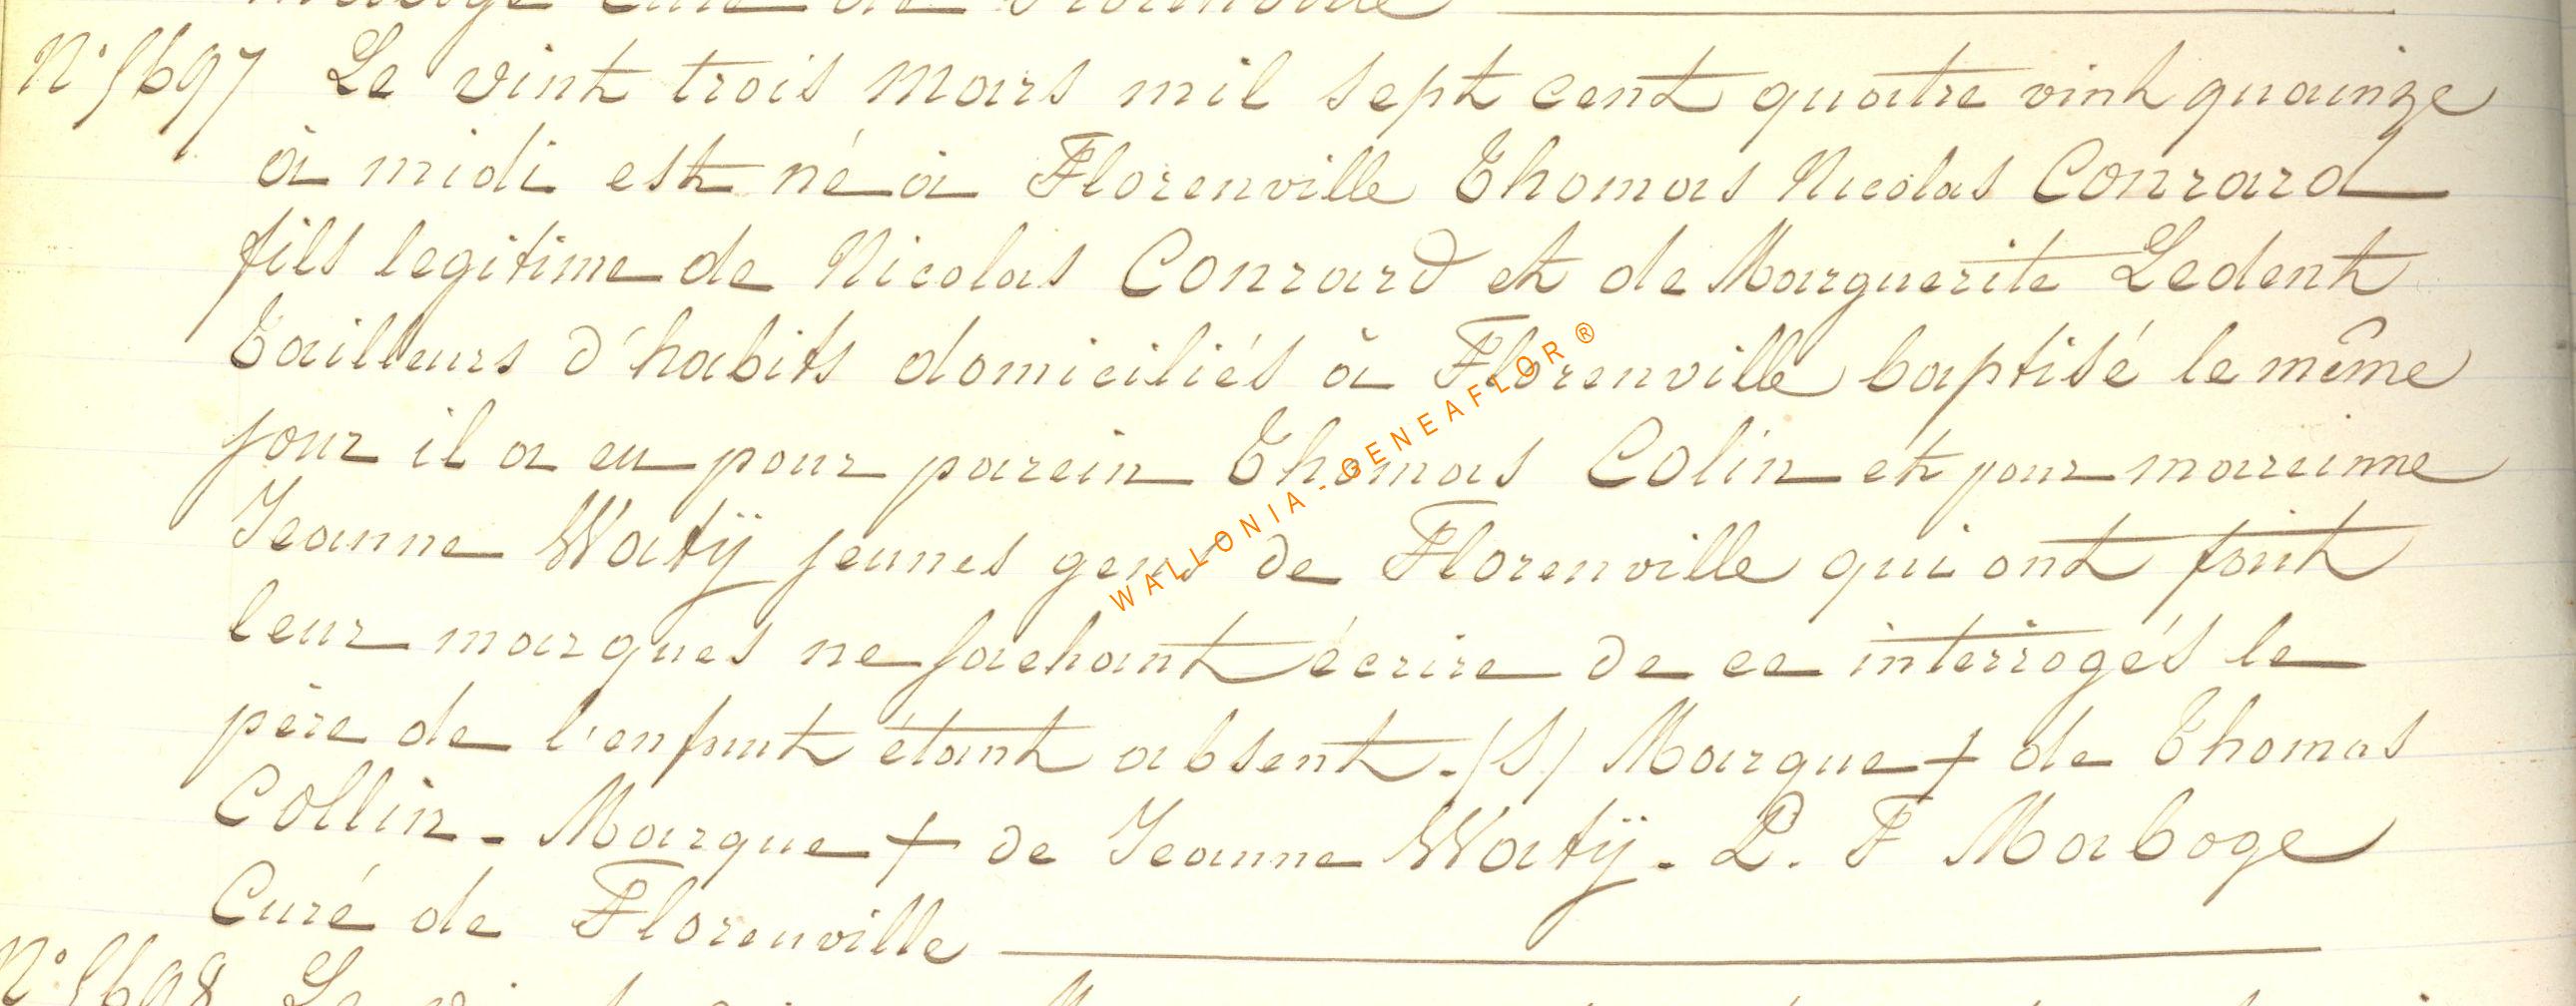 Maboge Curé de Florenville
N° 5697 Le vint trois Mars mil sept cent quatre vint quainze
à midi est né à Florenville Thomas Nicolas Conrard
fils legitime de Nicolas Conrard et de Marguerite Ledent
Tailleurs d'habits domiciliés à Florenville baptisé le même
jour il a eu pour parein Thomas Colin et pour mareinne
Jeanne Watÿ jeunes gens de Florenville qui ont fait
leur marques ne sachant écrire de ce interrogés le
père de l'enfant étant absent. (S) Marque + de Thomas
Collin - Marque + de Jeanne Watÿ - L. F Maboge
Curé de Florenville
N° 5698 Le
WALLONIA-GENEAFLOR ®